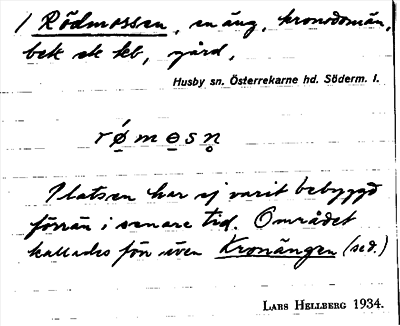 1 Rödmossen, en äng, kronodomän,
bek sk kb, gård,
Husby sn. Österrekarne hd. Söderm. l.
rǿmɵsn̥
Platsen har ej varit bebyggd
förrän i senare tid. Området
kallades förr även Kronängen (sed.)
Lars Hellberg 1934.